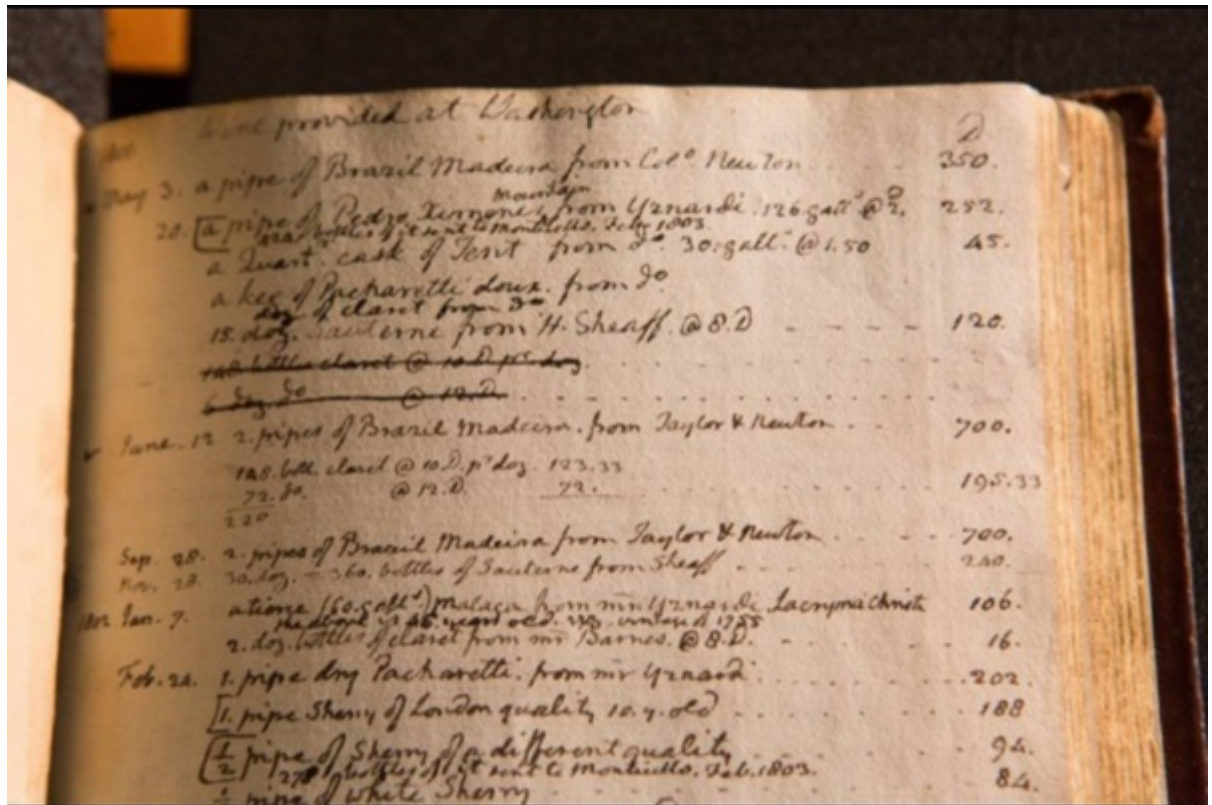 Wine provided at Washington
1801 D
May 3. a pipe of Brazil Madeira from Colº. Newton 350.
mountain
20. [a pipe of Pedro Ximenes from Yznardi. 126 gallˢ @ 2.D 252.
bottles of it sent to Monticello. Feb. 1803.
a Quart. cask of Tent from dº. 30. gallˢ. @ 1.50 45.
a keg of Pacharetti doux. from dº
doz. of claret from dº
15. doz. Sauterne from H. Sheaff. @ 8.D 120.
148 bottles claret @ 10.D pʳ doz
6 doz dº @ 12.D.
June. 12 2. pipes of Brazil Madeira. from Taylor & Newton 700.
148. bott. claret @ 10.D. pʳ doz. 123.33
72. dº. @ 12.D. 72. 195.33
220
Sep. 28. 2. pipes of Brazil Madeira from Taylor & Newton 700.
Nov. 28. 30. doz. = 360. bottles of Sauterne from Sheaff 240.
1802 Jan. 7. a tierce (60. gallˢ.) Malaga from mr Yznardi Lacryma Christi 106.
the above is 46. years old. viz. vintage of 1755
2. doz. bottles of claret from mr Barnes. @ 8.D. 16.
Feb. 24. 1. pipe dry Pacharetti. from mr Yznardi 202.
[1. pipe Sherry of London quality 10. y. old 188
[½ pipe of Sherry of a different quality 94.
278 bottles of it sent to Monticello. Feb. 1803.
½ pipe of white Sherry 84.